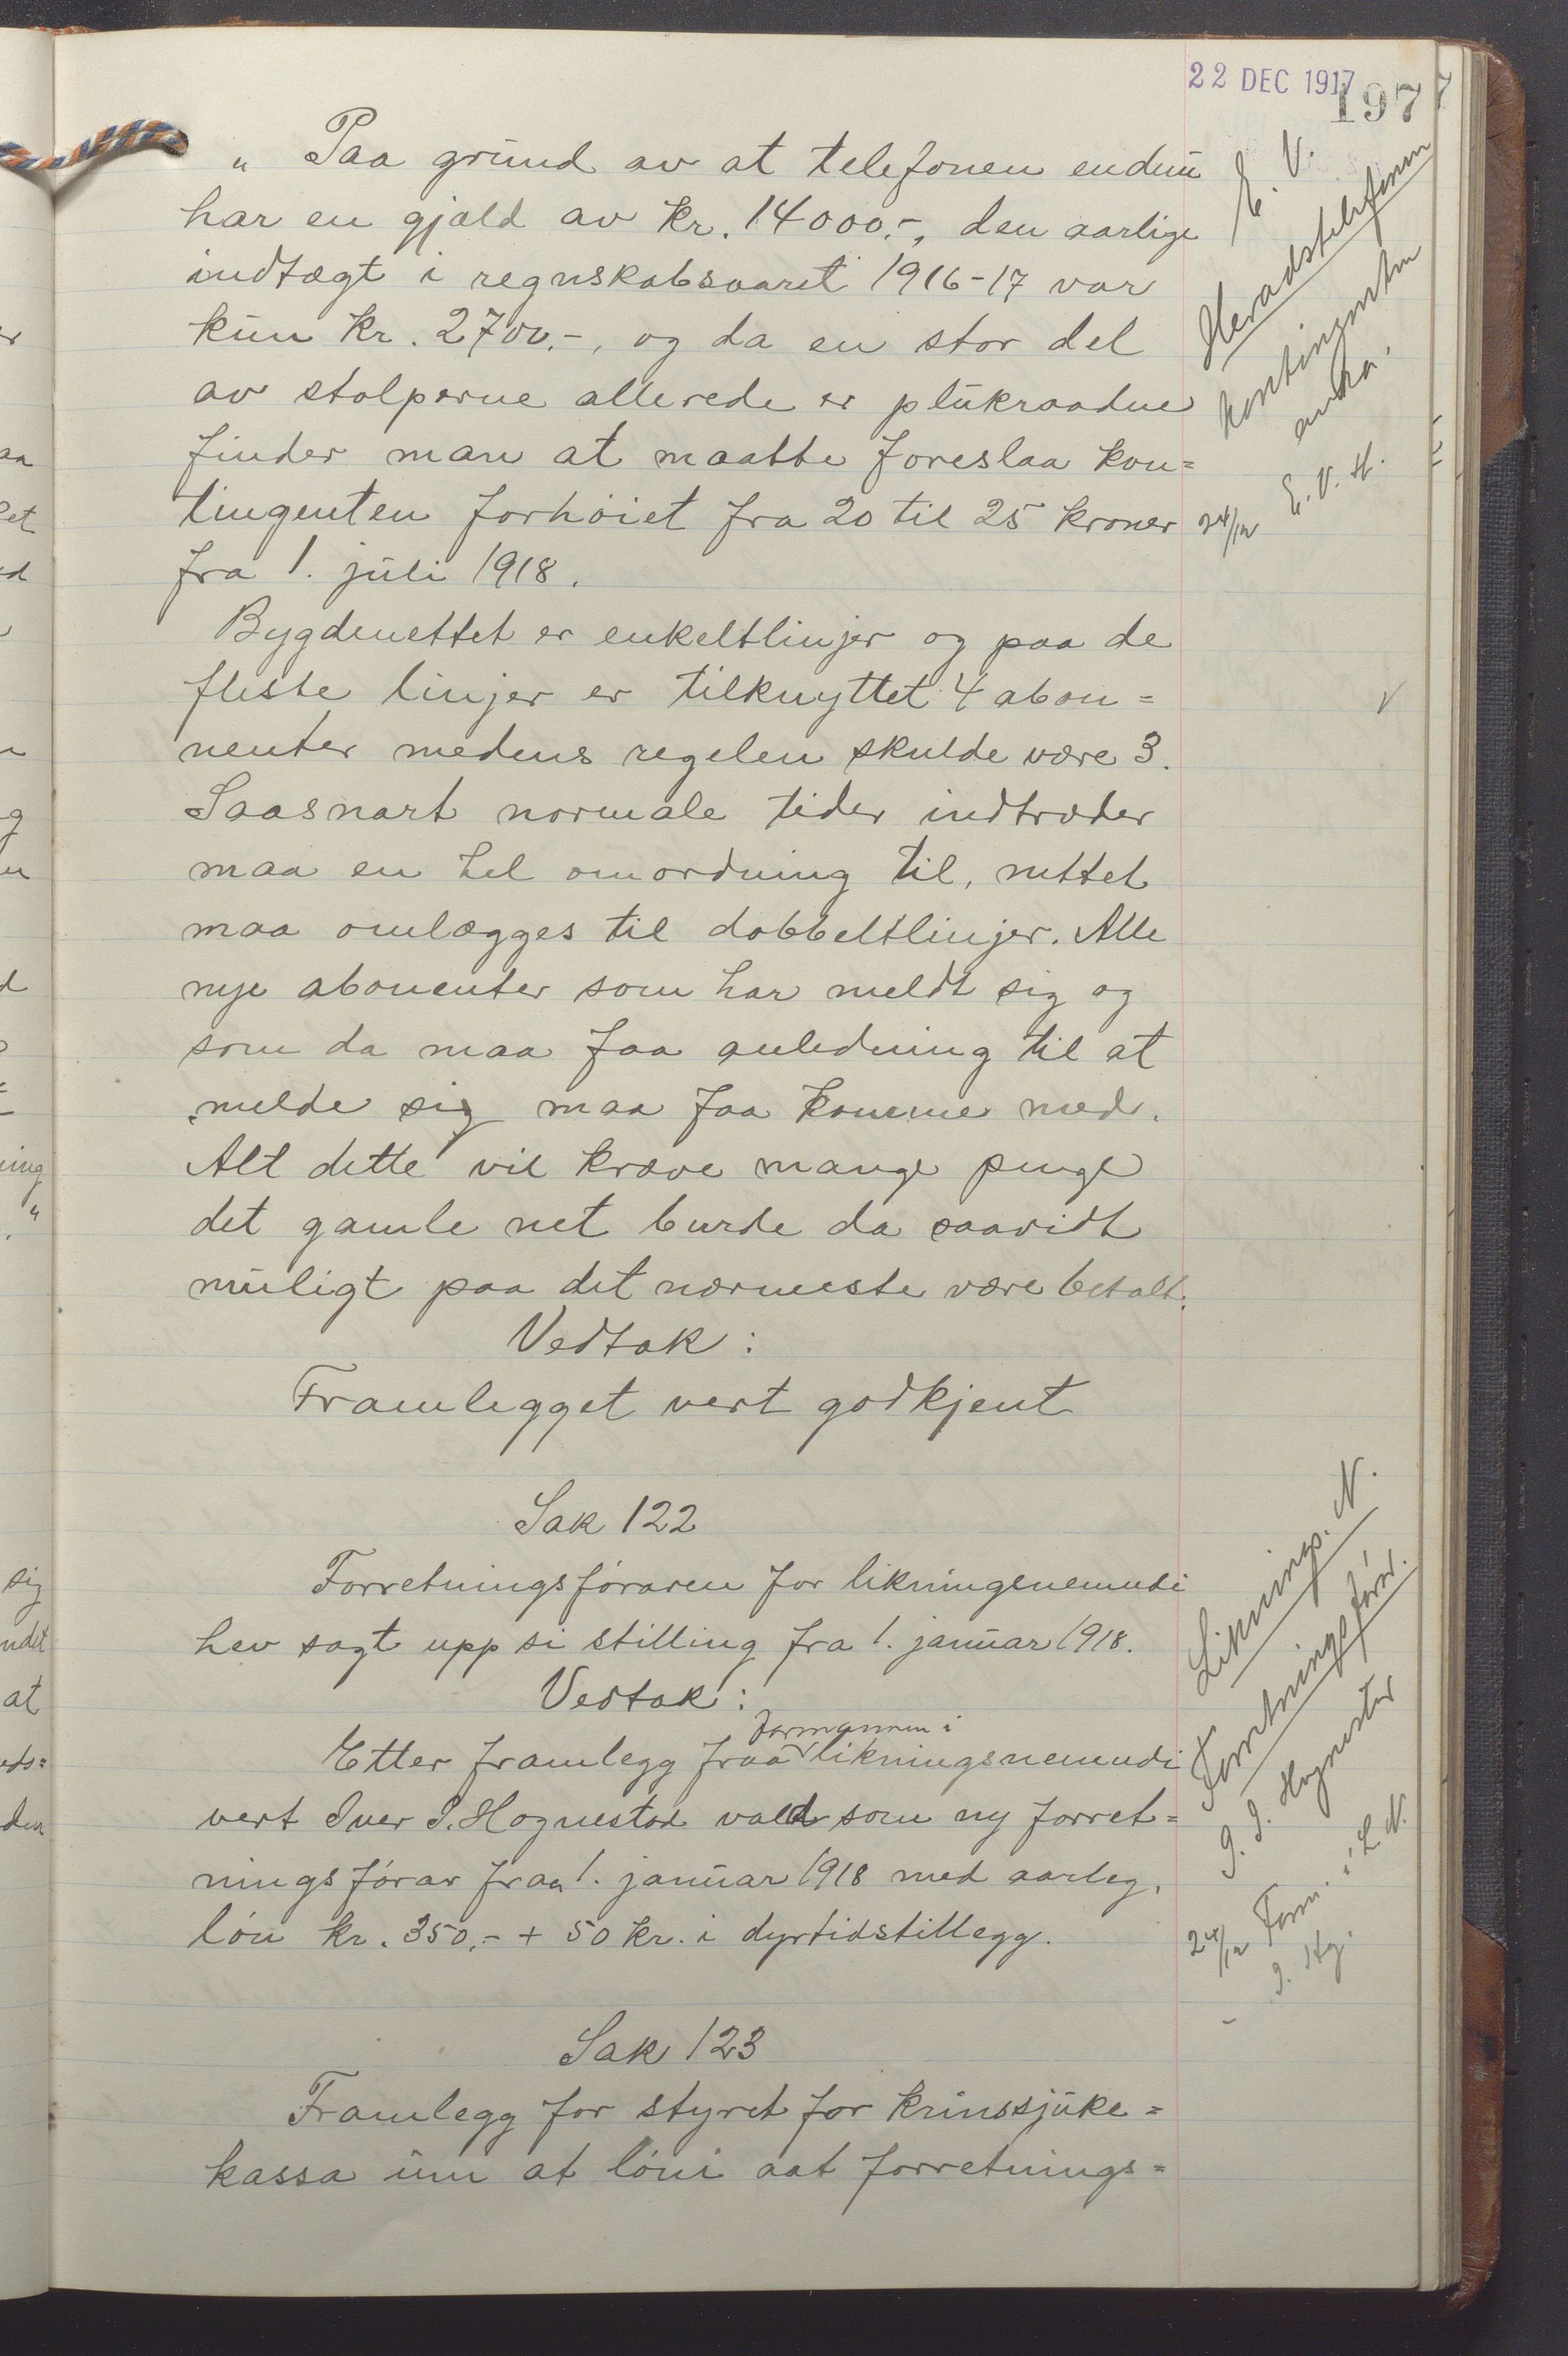 22 DEC 1917
197
„ Paa grund av at telefonen endnu
har en gjæld av kr. 14000.-, den aarlige
indtægt i regnskabsaaret 1916-17 var
kun kr. 2700.-, og da en stor del
av stolperne allerede er plukraadne
finder man at maatte foreslaa kon=
tingenten forhøiet fra 20 til 25 kroner
fra 1. juli 1918.
Bygdenettet er enkeltlinjer og paa de
fleste linjer er tilknyttet 4 abon=
nenter medens regelen skulde være 3.
Saasnart normale tider indtræder
maa en hel omordning til, nettet
maa omlægges til dobbeltlinjer. Alle
nye abonenter som har meldt sig og
som da maa faa anledning til at
melde sig maa faa komme med.
Alt dette vil kræve mange penge
det gamle net burde da saavidt
muligt paa det nærmeste være betalt.
Vedtak:
Framlegget vert godkjent
Sak 122
Forretningsføraren for likningsnemndi
hev sagt upp si stilling fra 1. januar 1918.
Vedtak:
formannen i
Etter framlegg fraa likningsnemndi
vert Iver I. Hognestad vald som ny forret=
ningsførar fraa 1. januar 1918 med aarleg.
løn kr. 350,- + 50 kr. i dyrtidstillegg.
Sak 123
Framlegg for styret for krinssjuke=
kassa um at løni aat forretnings=
E. V.
Heradstelefonen
kontingenten
auka.
E. V. H.
24/12
Liknings. N.
Forretningsførar.
I. I. Hognestad
24/12 Form. i L. N.
I. Hg.